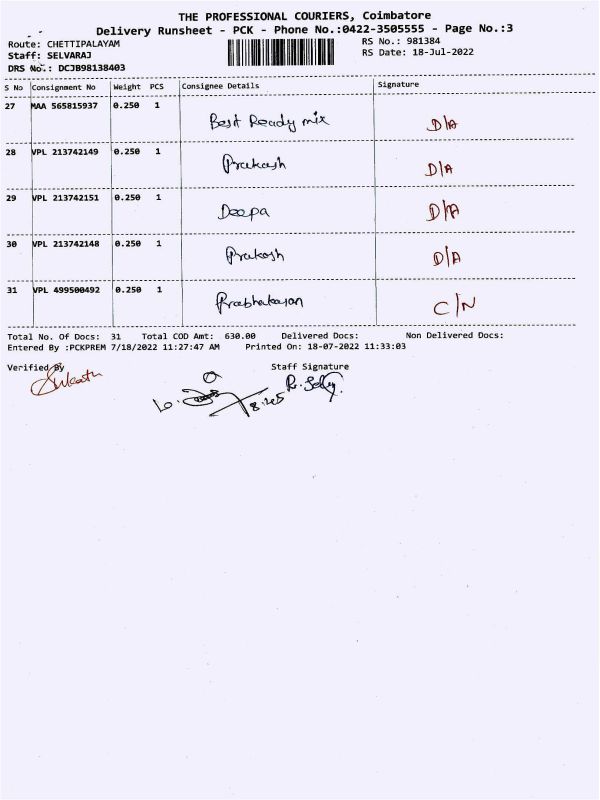 THE PROFESSIONAL COURIERS, Coimbatore
Delivery Runsheet - PCK - Phone No.:0422-3505555 - Page No.:3
Route: CHETTIPALAYAM RS No.: 981384
Staff: SELVARAJ RS Date: 18-Jul-2022
DRS No.: DCJB98138403
S No Consignment No Weight PCS Consignee Details Signature
27 MAA 565815937 0.250 1
Best Ready mix D/A
28 VPL 213742149 0.250 1
Prakash D/A
29 VPL 213742151 0.250 1
Deepa D/A
30 VPL 213742148 0.250 1
Prakash D/A
31 VPL 499500492 0.250 1
Prabhakaran C/N
Total No. Of Docs: 31 Total COD Amt: 630.00 Delivered Docs: Non Delivered Docs:
Entered By :PCKPREM 7/18/2022 11:27:47 AM Printed On: 18-07-2022 11:33:03
Verified By Staff Signature